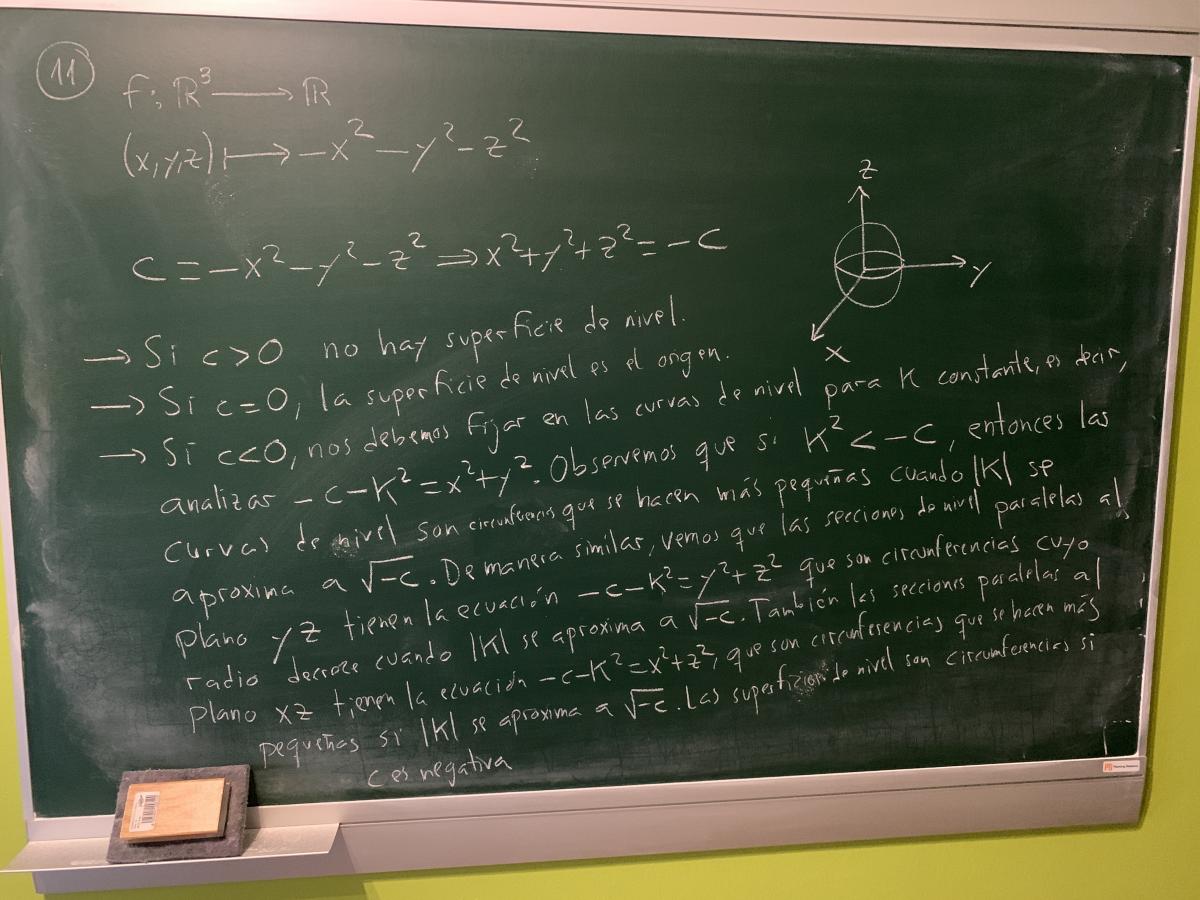 11
f: ℝ³ ⟶ ℝ
(x,y,z) ⟼ -x² - y² - z²
z
y
x
c = -x² - y² - z² ⟹ x² + y² + z² = -c
→ Si c>0 no hay superficie de nivel.
→ Si c=0, la superficie de nivel es el origen.
→ Si c<0, nos debemos fijar en las curvas de nivel para K constante, es decir,
analizar -c-K² = x²+y². Observemos que si K² < -c, entonces las
curvas de nivel son circunferencias que se hacen más pequeñas cuando |K| se
aproxima a √-c. De manera similar, vemos que las secciones de nivel paralelas al
plano yz tienen la ecuación -c-K² = y²+z² que son circunferencias cuyo
radio decrece cuando |K| se aproxima a √-c. También las secciones paralelas al
plano xz tienen la ecuación -c-K² = x²+z², que son circunferencias que se hacen más
pequeñas si |K| se aproxima a √-c. Las superficies de nivel son circunferencias si
c es negativa